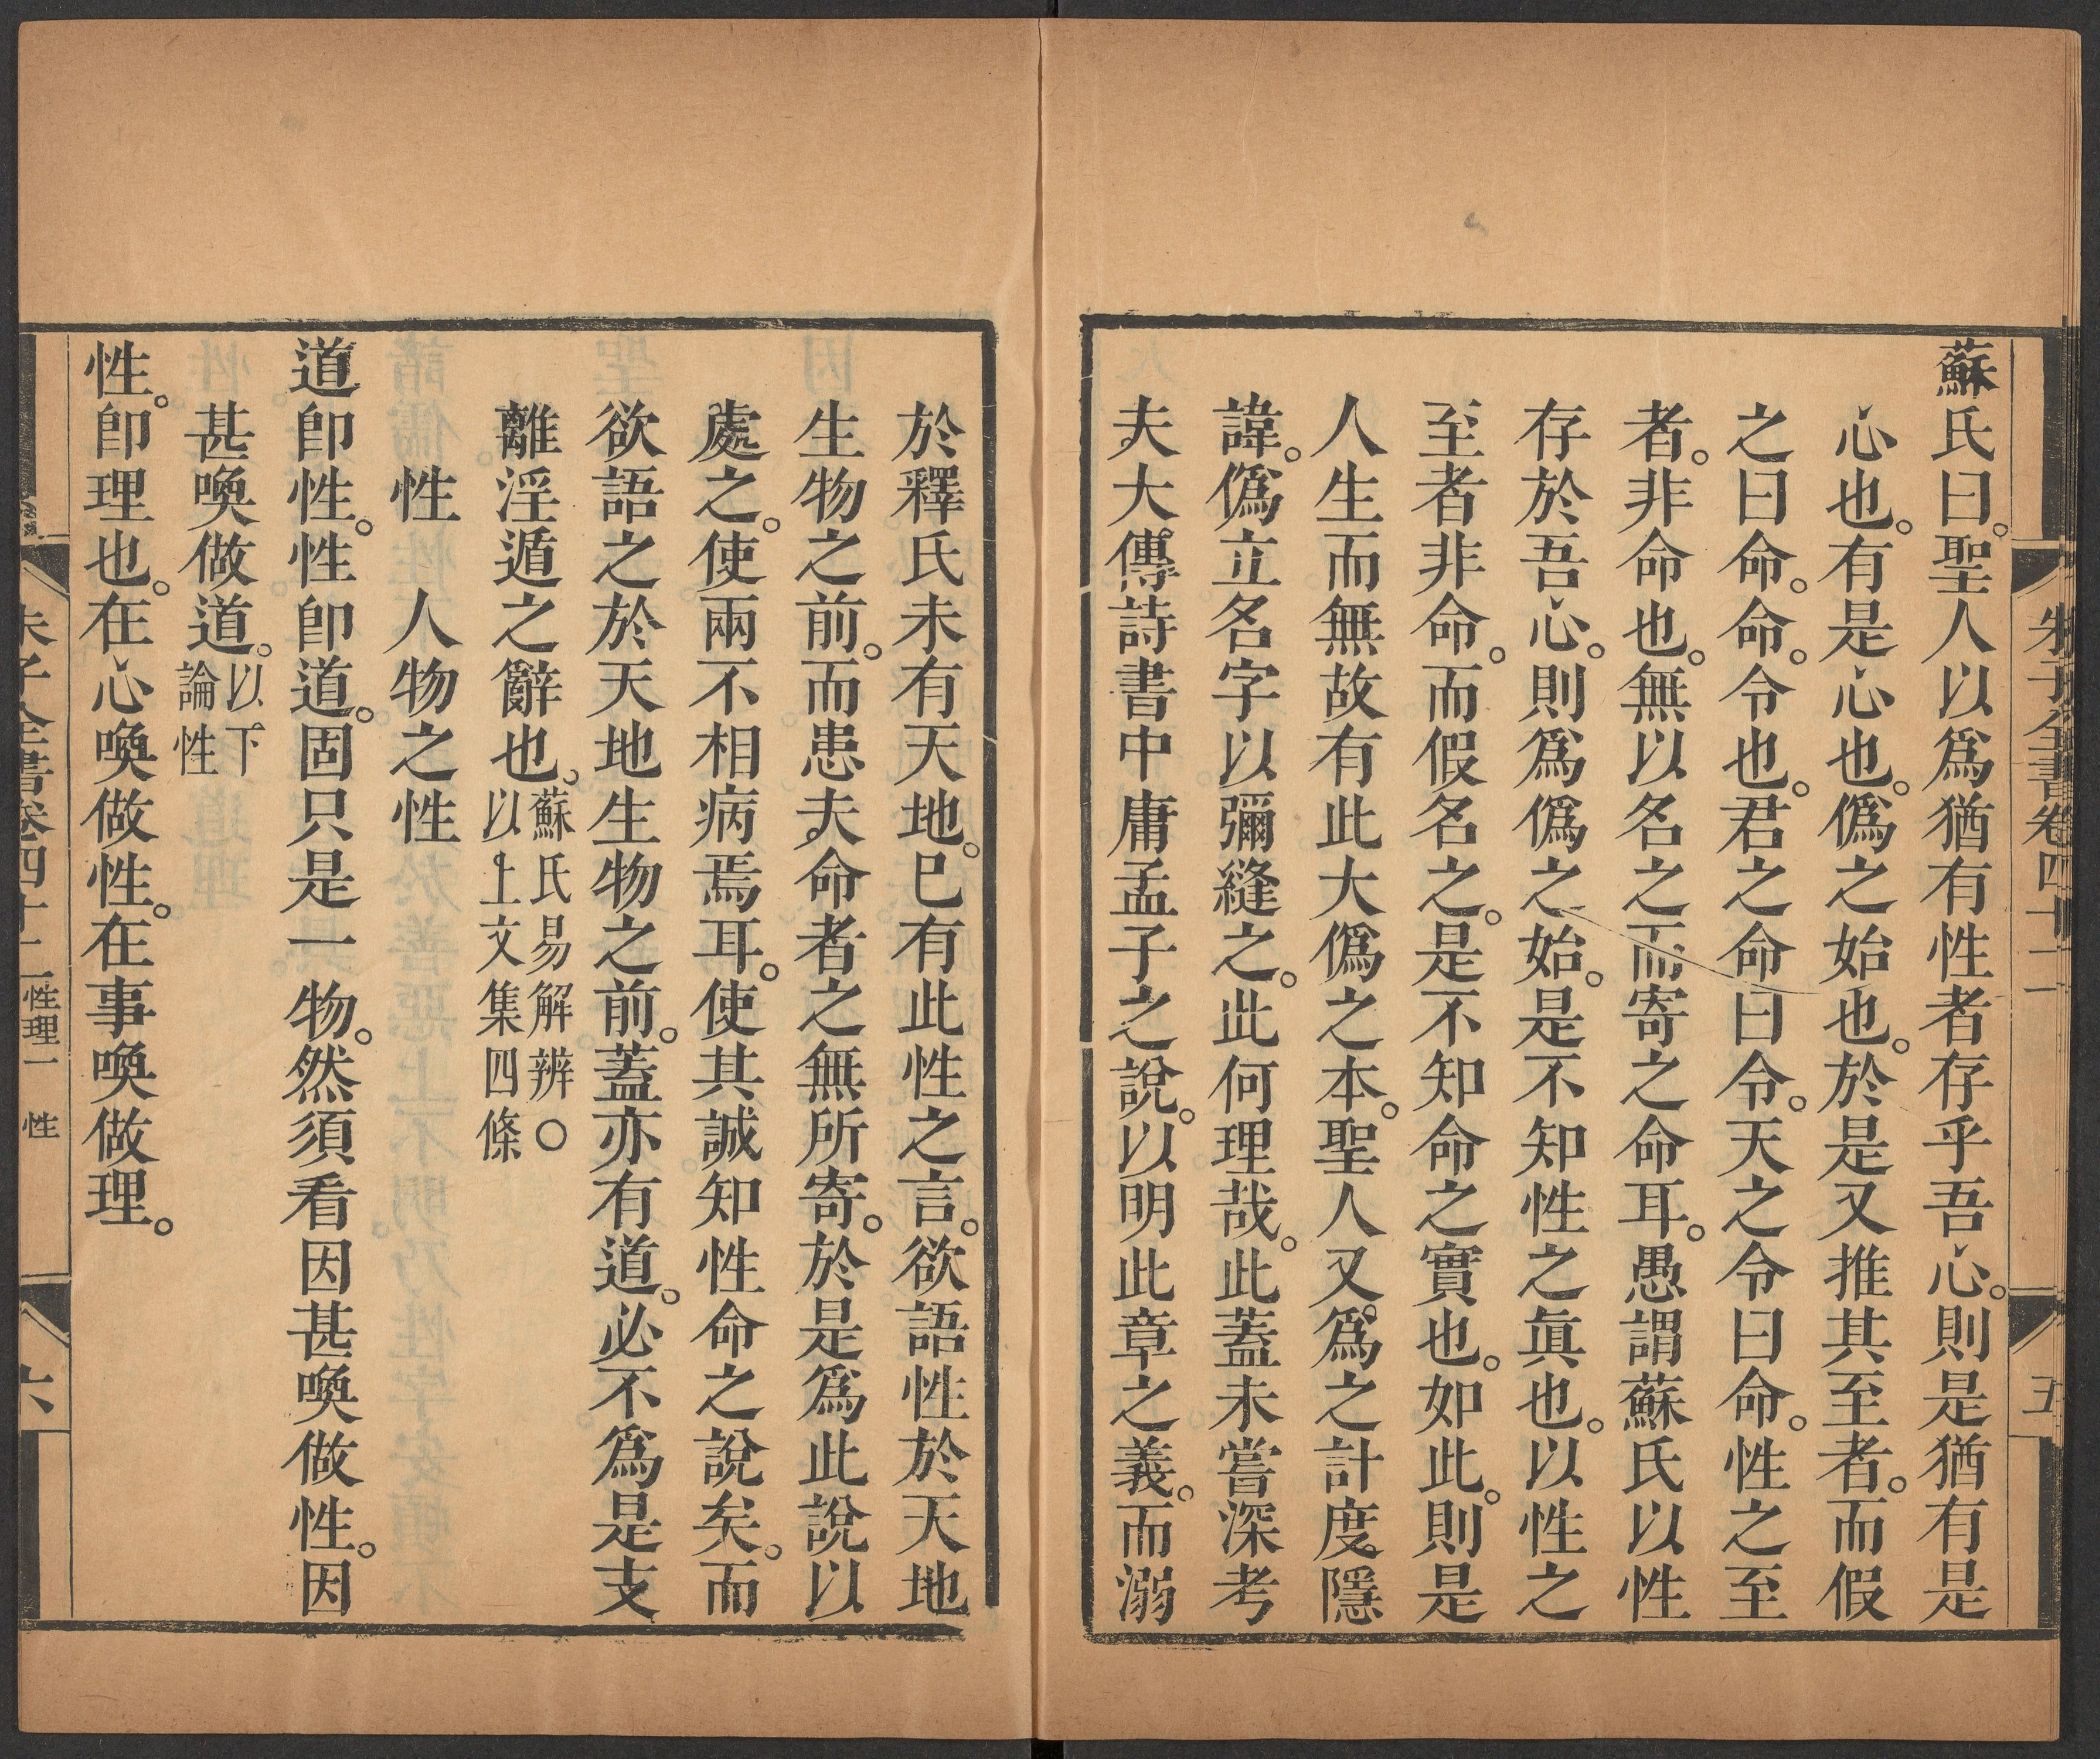 朱子全書卷四十二
五
蘇氏曰。聖人以爲猶有性者存乎吾心。則是猶有是
心也。有是心也。僞之始也。於是又推其至者。而假
之曰命。命。令也。君之命曰令。天之令曰命。性之至
者。非命也。無以名之。而寄之命耳。愚謂蘇氏以性
存於吾心。則爲僞之始。是不知性之眞也。以性之
至者非命。而假名之。是不知命之實也。如此。則是
人生而無故有此大僞之本。聖人又爲之計度隱
諱。僞立名字以彌縫之。此何理哉。此蓋未嘗深考
夫大傳詩書中庸孟子之說。以明此章之義。而溺
於釋氏未有天地。巳有此性之言。欲語性於天地
生物之前。而患夫命者之無所寄。於是爲此說以
處之。使兩不相病焉耳。使其誠知性命之說矣。而
欲語之於天地生物之前。蓋亦有道。必不爲是支
離淫遁之辭也。蘇氏易解辨〇
以上文集四條
性 人物之性
道卽性。性卽道。固只是一物。然須看因甚喚做性。因
甚喚做道。以下
論性
性。卽理也。在心喚做性。在事喚做理。
朱子全書卷四十二 性理一 性
六